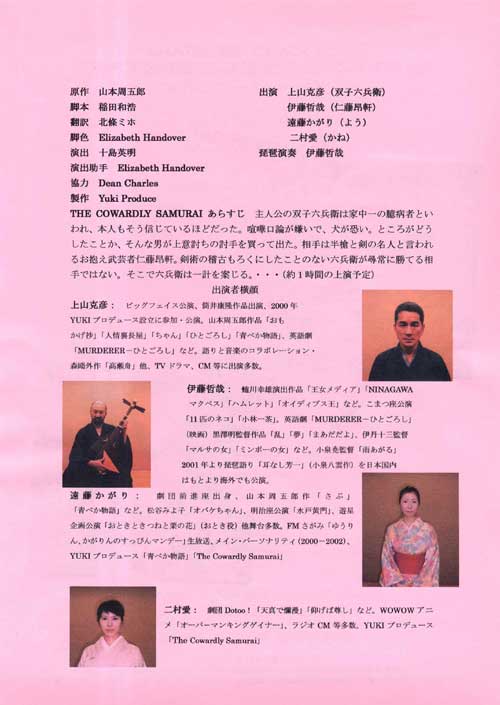 原作　山本周五郎
脚本　稲田和浩
翻訳　北條ミホ
脚色　Elizabeth Handover
演出　十島英明
演出助手　Elizabeth Handover
協力　Dean Charles
製作　Yuki Produce
出演　上山克彦（双子六兵衛）
伊藤哲哉（仁藤昂軒）
遠藤かがり（よう）
二村愛（かね）
琵琶演奏　伊藤哲哉
THE COWARDLY SAMURAI あらすじ　主人公の双子六兵衛は家中一の臆病者とい
われ、本人もそう信じているほどだった。喧嘩口論が嫌いで、犬が恐い。ところがどう
したことか、そんな男が上意討ちの討手を買って出た。相手は半槍と剣の名人と言われ
るお抱え武芸者仁藤昂軒。剣術の稽古もろくにしたことのない六兵衛が尋常に勝てる相
手ではない。そこで六兵衛は一計を案じる。・・・（約１時間の上演予定）
出演者横顔
上山克彦：　ビッグフェイス公演、筒井康隆作品出演、2000年
YUKIプロデュース設立に参加・公演。山本周五郎作品「おも
かげ抄」「人情裏長屋」「ちゃん」「ひとごろし」「青べか物語」、英語劇
「MURDERER－ひとごろし」など。語りと音楽のコラボレーション・
森鷗外作「高瀬舟」他、TVドラマ、CM等に出演多数。
伊藤哲哉：　蜷川幸雄演出作品「王女メディア」「NINAGAWA
マクベス」「ハムレット」「オイディプス王」など。こまつ座公演
「11匹のネコ」「小林一茶」。英語劇「MURDERER－ひとごろし」
（映画）黒澤明監督作品「乱」「夢」「まあだだよ」、伊丹十三監督
「マルサの女」「ミンボーの女」など。小泉堯監督「雨あがる」
2001年より琵琶語り「耳なし芳一」（小泉八雲作）を日本国内
はもとより海外でも公演。
遠藤かがり：　劇団前進座出身、山本周五郎作「さぶ」
「青べか物語」など。松谷みよ子「オバケちゃん」、明治座公演「水戸黄門」、遊星
企画公演「おときときつねと栗の花」（おとき役）他舞台多数。FMさがみ「ゆうり
ん、かがりんのすっぴんマンデー」生放送、メイン・パーソナリティ（2000－2002）、
YUKIプロデュース「青べか物語」「The Cowardly Samurai」
二村愛：　劇団Dotoo！「天真で爛漫」「仰げば尊し」など。WOWOWアニ
メ「オーバーマンキングゲイナー」、ラジオCM等多数。YUKIプロデュース
「The Cowardly Samurai」